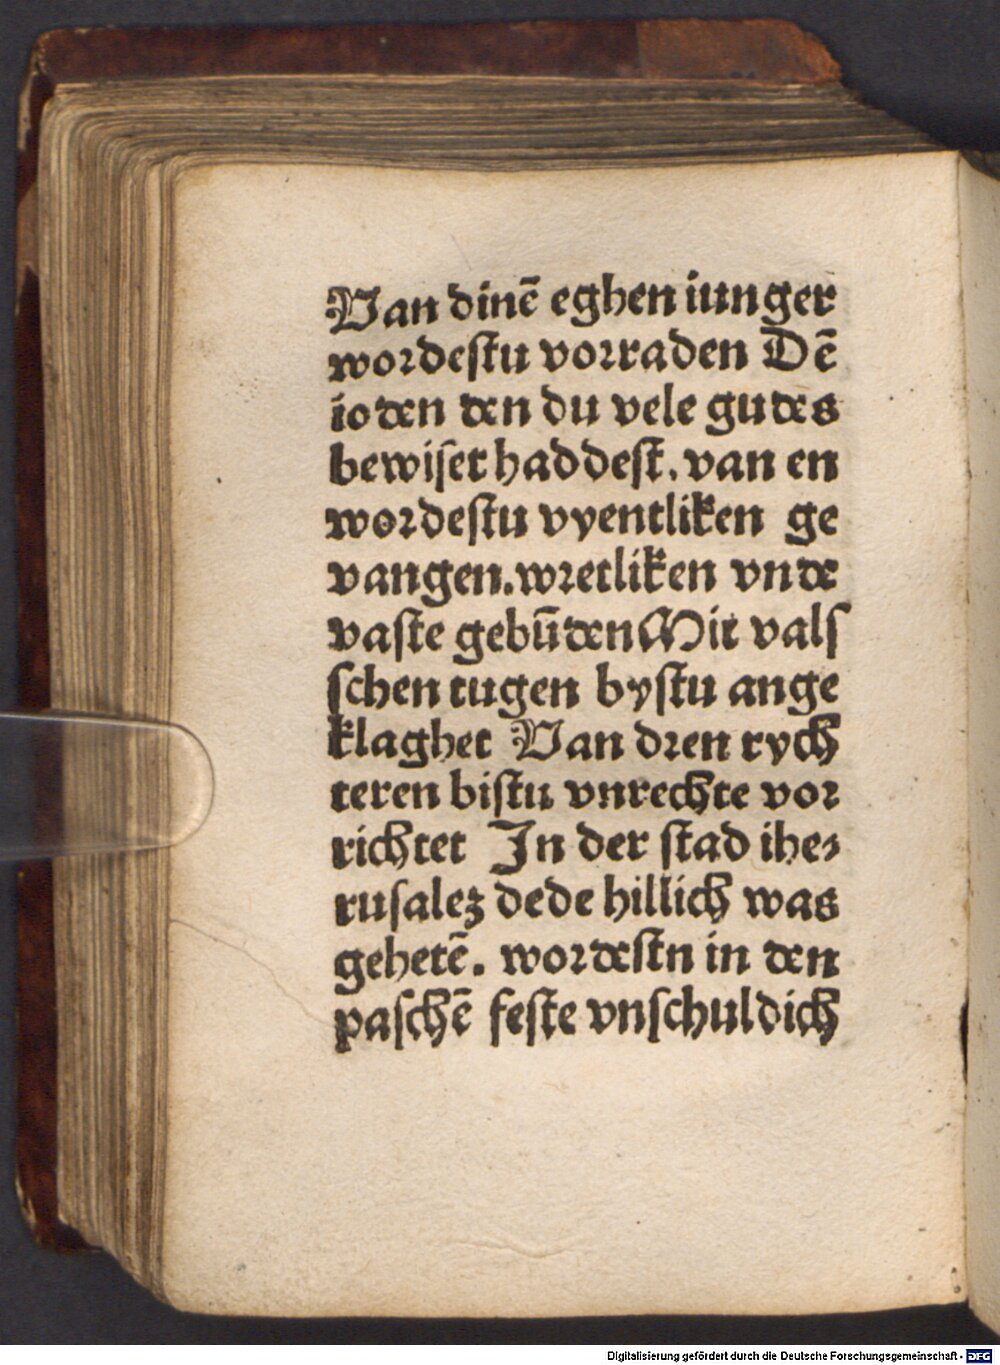 Van dinē eghen iunger
wordestu vorraden Dē
ioden den du vele gudes
bewiset haddest. van en
wordestu vyentliken ge
vangen. wretliken vnde
vaste gebūden Mit vals
schen tugen bystu ange
klaghet Van dren rych
teren bistu vnrechte vor
richtet In der stad ihe⸗
rusalez dede hillich was
gehetē. wordestn in den
paschē feste vnschuldich
Digitalisierung gefördert durch die Deutsche Forschungsgemeinschaft - DFG